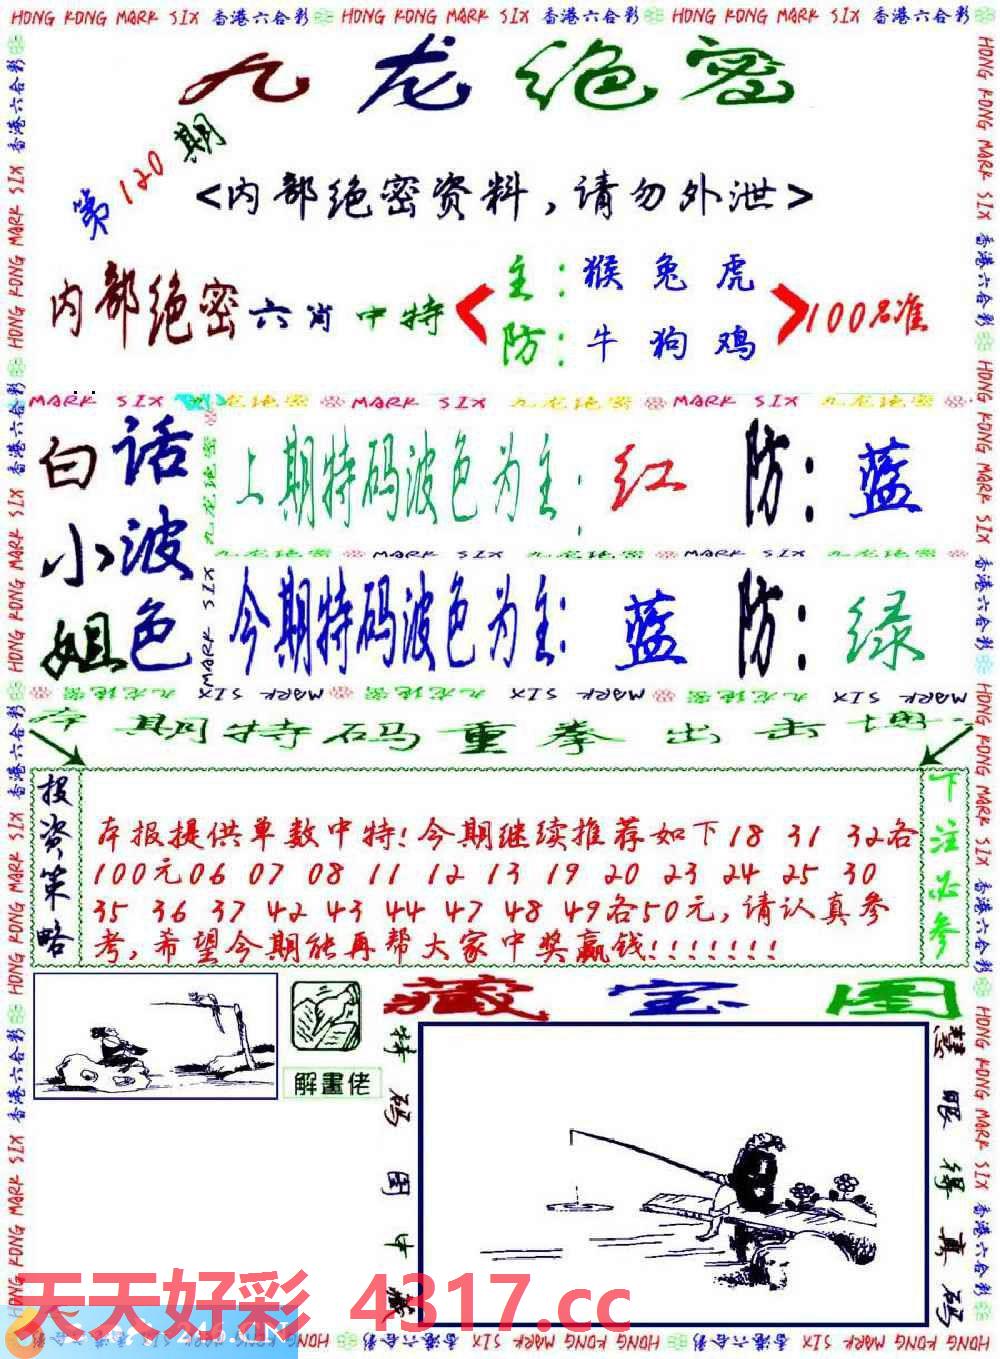 HONG KONG MARK SIX 香港六合彩 HONG KONG MARK SIX 香港六合彩 HONG KONG MARK SIX 香港六合彩
九龙绝密
第120期
<内部绝密资料,请勿外泄>
内部绝密六肖中特
主:猴兔虎
防:牛狗鸡
100%准
MARK SIX 九龙绝密 MARK SIX 九龙绝密 MARK SIX 九龙绝密
白小姐
话波色
上期特码波色为主:红 防:蓝
九龙绝密 MARK SIX 九龙绝密 MARK SIX 九龙绝密
今期特码波色为主:蓝 防:绿
本期特码重拳出击
投资策略
本报提供单数中特!今期继续推荐如下18 31 32各
100元06 07 08 11 12 13 19 20 23 24 25 30
35 36 37 42 43 44 47 48 49各50元,请认真参
考,希望今期能再帮大家中奖赢钱!!!!!!!
下注必参
藏宝图
解畫佬
特码图中藏
慧眼得真码
天天好彩 4317.cc
HONG KONG MARK SIX 香港六合彩